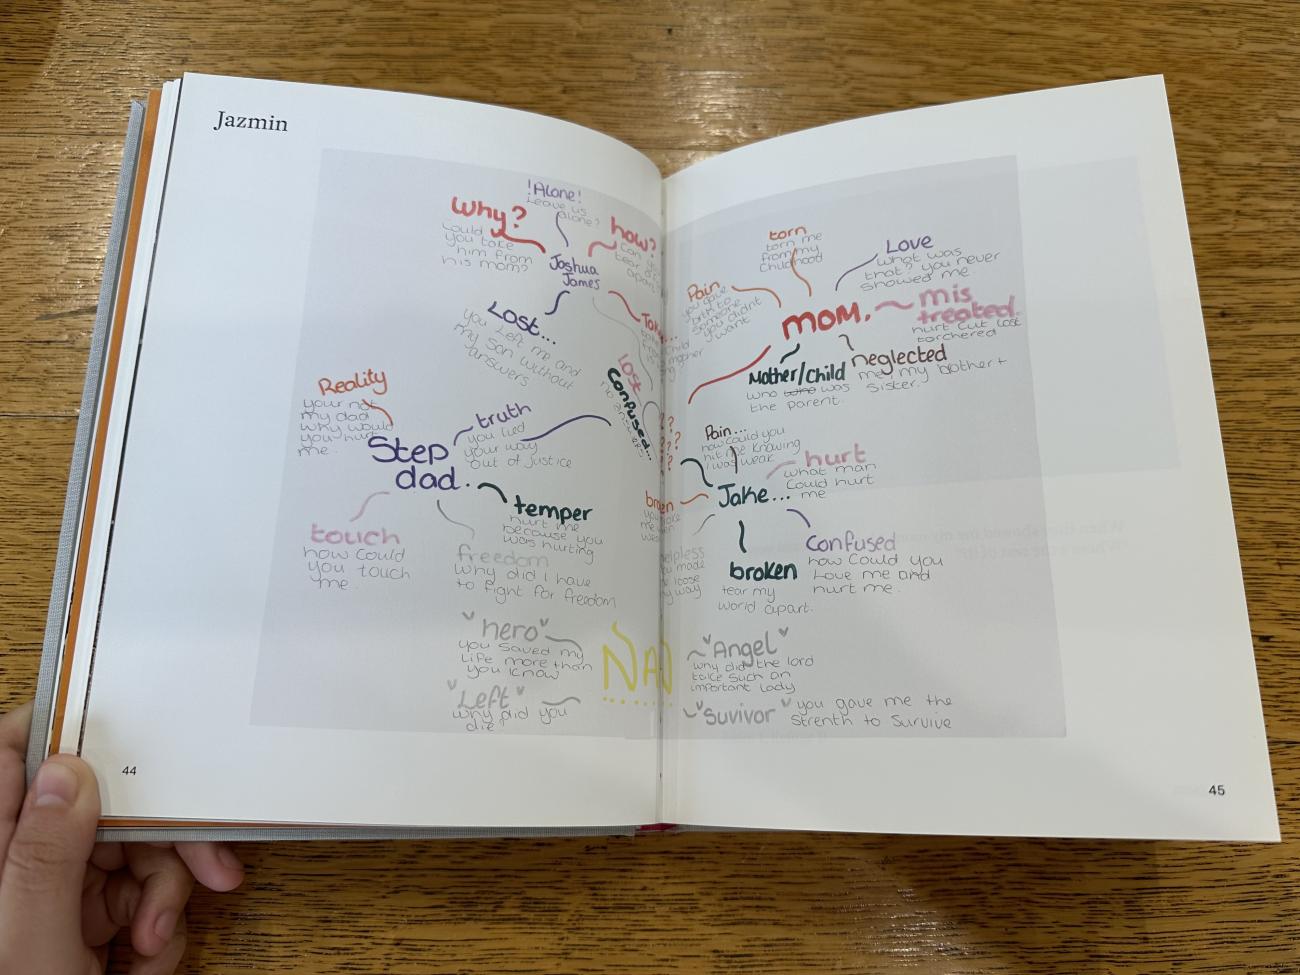 Jazmin
!Alone!
Leave us
alone?
why?
Could
you take
him from
his mom?
how?
Can
tear
apart
Joshua
James
Lost...
You Left me and
my son without
answers
Lost
Confused...
no answers
Reality
your not
my dad
why would
you hurt
me.
Step
dad.
truth
you lied
your way
out of justice
temper
hurt me
because you
was hurting
touch
how could
you touch
me.
freedom
Why did I have
to fight for freedom
"hero"
you saved my
life more than
you know
"Left"
why did you
die?
NAN
44
torn
torn me
from my
Childhood
Love
what was
that? you never
showed me.
Pain
you gave
birth to
someone
you didnt
want
mom.
mis
treated.
hurt cut lost
torchered
neglected
me, my brother +
sister.
Mother/Child
who was
the parent.
? ? ? ?
Pain...
how could you
hit me knowing
I was weak
hurt
what man
Could hurt
me
Jake...
broken
tear my
world apart.
Confused
how Could you
Love me and
hurt me.
"Angel"
why did the lord
take such an
important lady
"Suvivor" you gave me the
strenth to survive
45